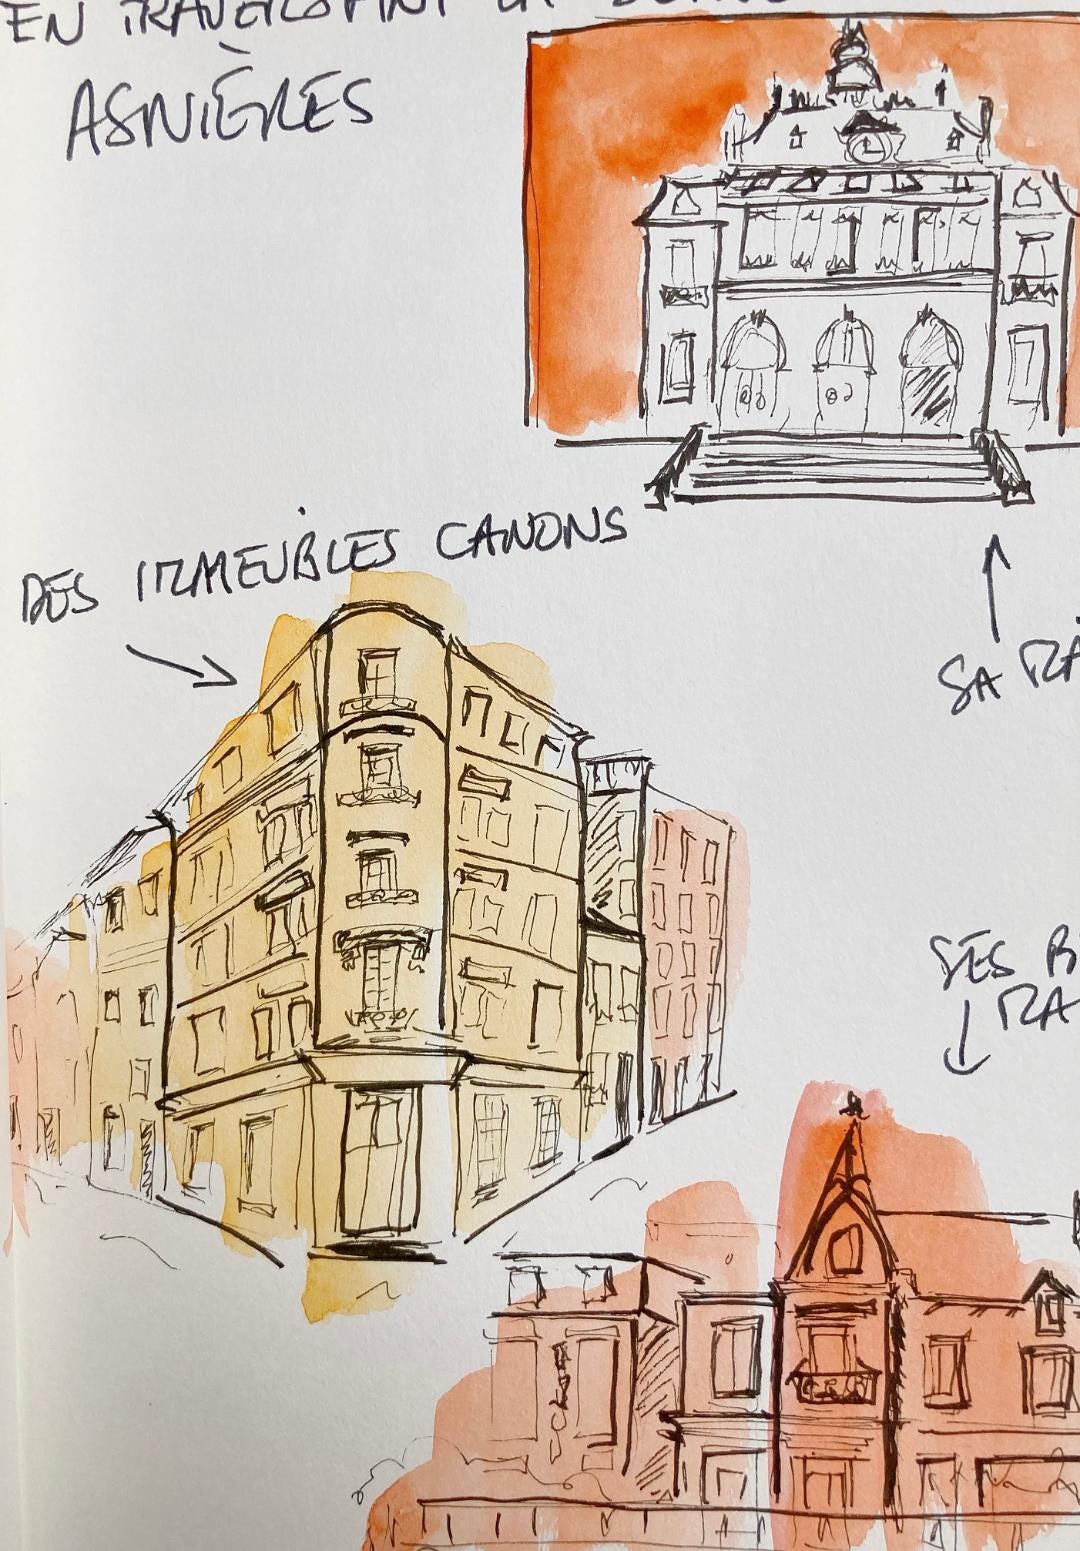 EN TRAVERSANT LA SEINE
ASNIÈRES
DES IMMEUBLES CANONS
SA MA
SES B
MA